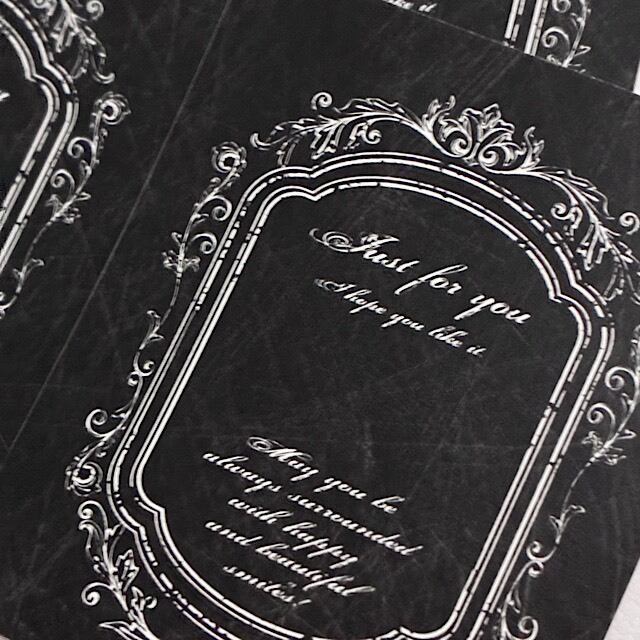 like it
Just for you
I hope you like it
May you be
always surrounded
with happy
and beautiful
smiles!